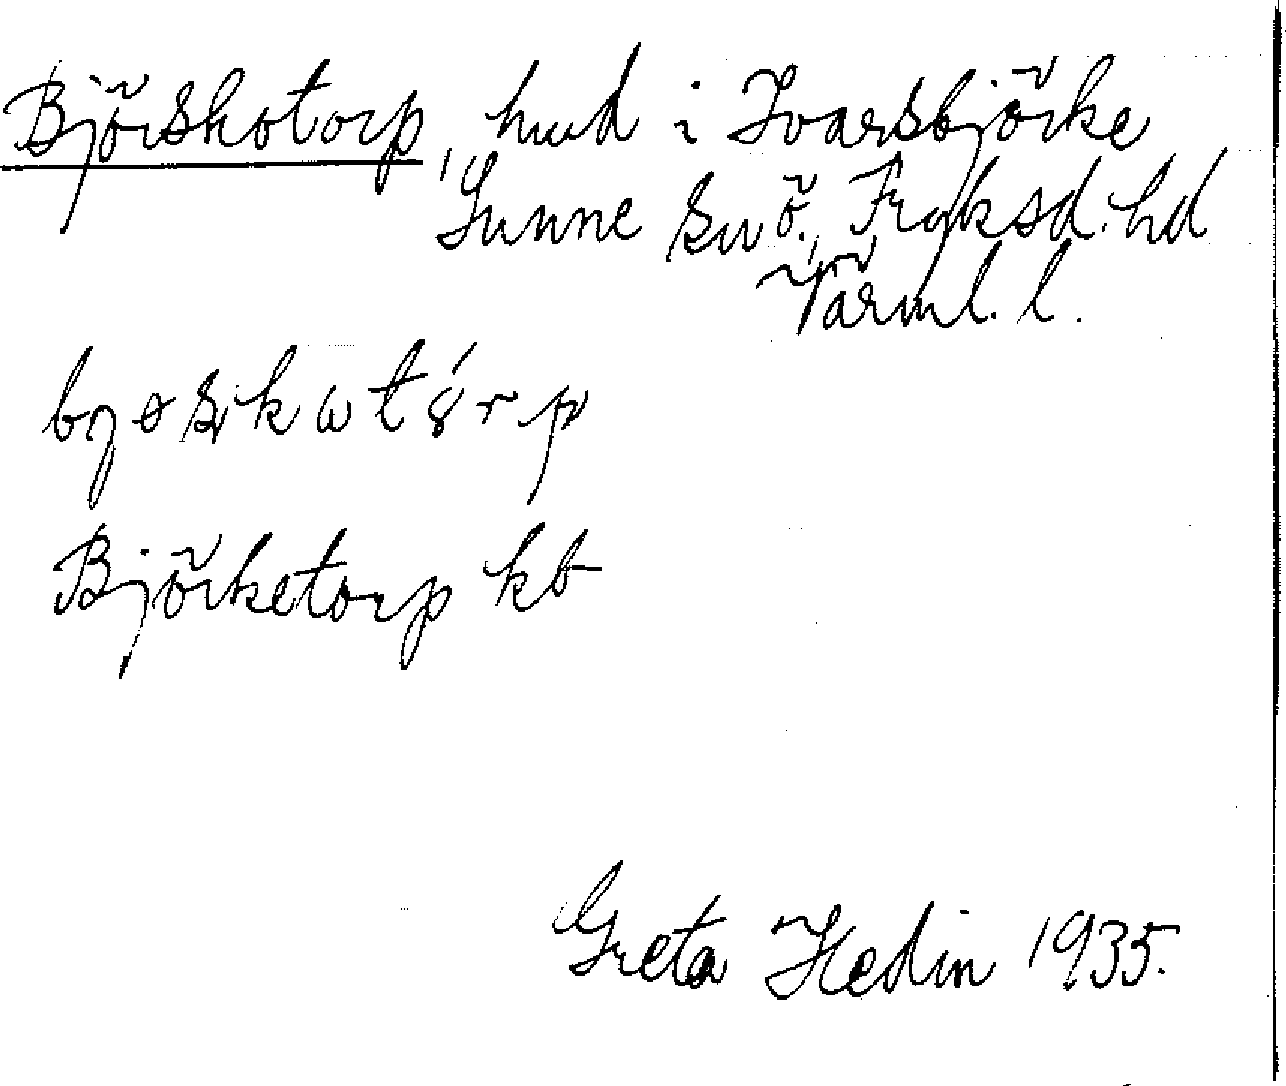 Björskotorp, hmd i Ivarsbjörke
Sunne sn ö. Fryksd. hd
Värml. l.
bjøskωtȣ́rp
Björketorp kb
Greta Hedin 1935.